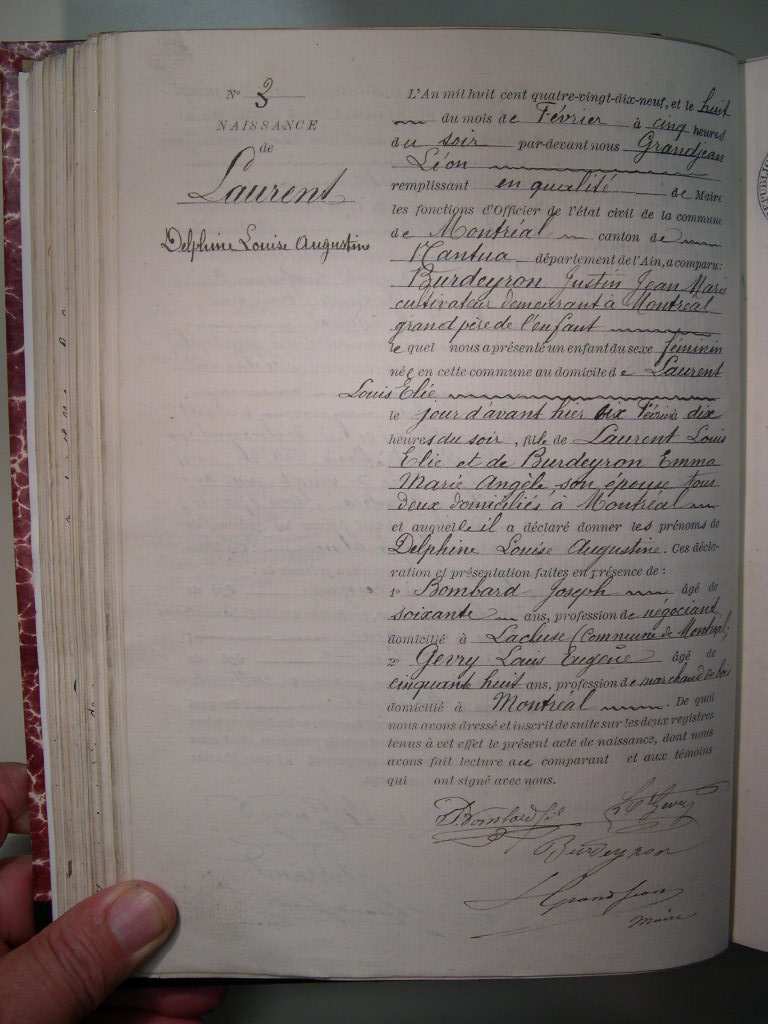 N° 3
NAISSANCE
de
Laurent
Delphine Louise Augustine
L'An mil huit cent quatre-vingt-dix-neuf, et le huit
du mois de Février à cinq heures
du soir par-devant nous Grandjean
Léon
remplissant en qualité de Maire
les fonctions d'Officier de l'état civil de la commune
de Montréal canton de
Nantua département de l'Ain, a comparu:
Burdeyron Justin Jean Marie
cultivateur demeurant à Montréal
grand père de l'enfant
le quel nous a présenté un enfant du sexe féminin
née en cette commune au domicile de Laurent
Louis Elie
le jour d'avant hier six Février à dix
heures du soir, fille de Laurent Louis
Elie et de Burdeyron Emma
Marie Angèle son épouse tous
deux domiciliés à Montréal
et auquelle il a déclaré donner les prénoms de
Delphine Louise Augustine. Ces décla-
ration et présentation faites en présence de :
1° Bombard Joseph âgé de
soixante ans, profession de négociant
domicilié à Lacluse (Commune de Montréal)
2° Gevry Louis Eugène âgé de
cinquante huit ans, profession de marchand de bois
domicilié à Montréal. De quoi
nous avons dressé et inscrit de suite sur les deux registres
tenus à cet effet le présent acte de naissance, dont nous
avons fait lecture au comparant et aux témoins
qui ont signé avec nous.
Bombard
Gevry
Burdeyron
L Grandjean
Maire
RÉPUBLIQ